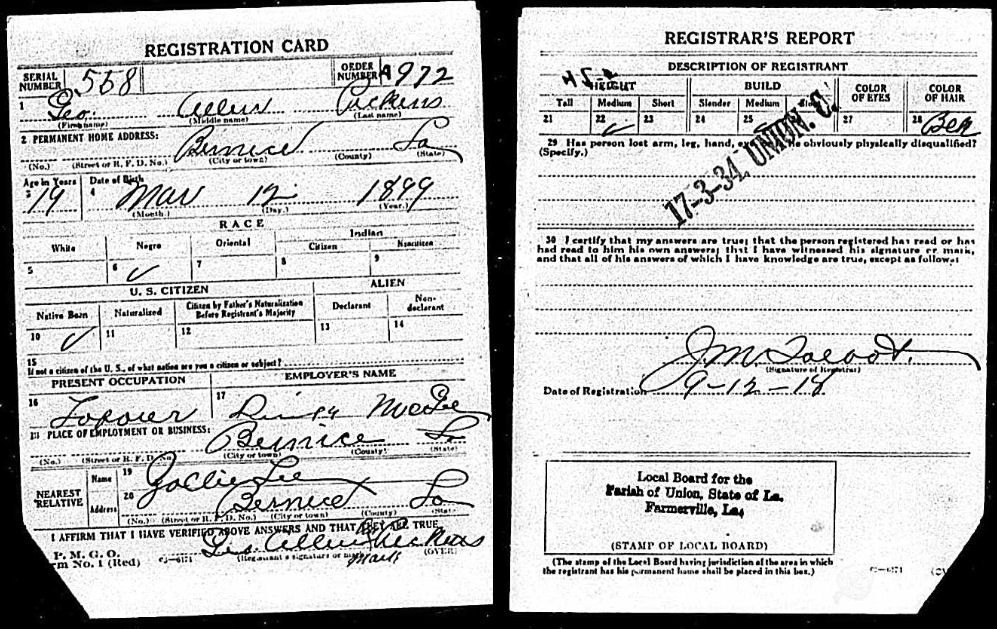 REGISTRATION CARD
SERIAL NUMBER 558 ORDER NUMBER A972
1 Geo. Allen Pickens
(First name) (Middle name) (Last name)
2 PERMANENT HOME ADDRESS:
Bernice La
(No.) (Street or R. F. D. No.) (City or town) (County) (State)
Age in Years Date of Birth
3 19 4 Mar 12 1899
(Month.) (Day.) (Year.)
RACE
White Negro Oriental Indian
Citizen Noncitizen
5 6 ✓ 7 8 9
U. S. CITIZEN ALIEN
Native Born Naturalized Citizen by Father's Naturalization Before Registrant's Majority Declarant Non-declarant
10 ✓ 11 12 13 14
15
If not a citizen of the U. S., of what nation are you a citizen or subject?
PRESENT OCCUPATION EMPLOYER'S NAME
16 17 McGee
18 PLACE OF EMPLOYMENT OR BUSINESS:
Bernice La
(No.) (Street or R. F. D. No.) (City or town) (County) (State)
NEAREST RELATIVE
Name 19 Lee
Address 20 Bernice La
(No.) (Street or R. F. D. No.) (City or town) (County) (State)
I AFFIRM THAT I HAVE VERIFIED ABOVE ANSWERS AND THAT THEY ARE TRUE
P. M. G. O.
m No. 1 (Red) Geo. Allen Pickens
(Registrant's signature or mark) (OVER)
mark
REGISTRAR'S REPORT
DESCRIPTION OF REGISTRANT
HEIGHT BUILD COLOR OF EYES COLOR OF HAIR
Tall Medium Short Slender Medium
21 22 ✓ 23 24 25 27 28
17-3-34. UNION. C.
29 Has person lost arm, leg, hand, obviously physically disqualified?
(Specify.)
30 I certify that my answers are true; that the person registered has read or has
had read to him his own answers; that I have witnessed his signature or mark,
and that all of his answers of which I have knowledge are true, except as follows:
J. M. Talbot.
(Signature of Registrar)
Date of Registration 9-12-18
Local Board for the
Parish of Union, State of La.
Farmerville, La.
(STAMP OF LOCAL BOARD)
(The stamp of the Local Board having jurisdiction of the area in which
the registrant has his permanent home shall be placed in this box.)